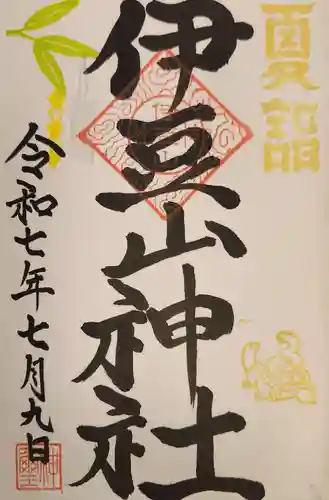 夏詣
伊豆山神社
令和七年七月九日